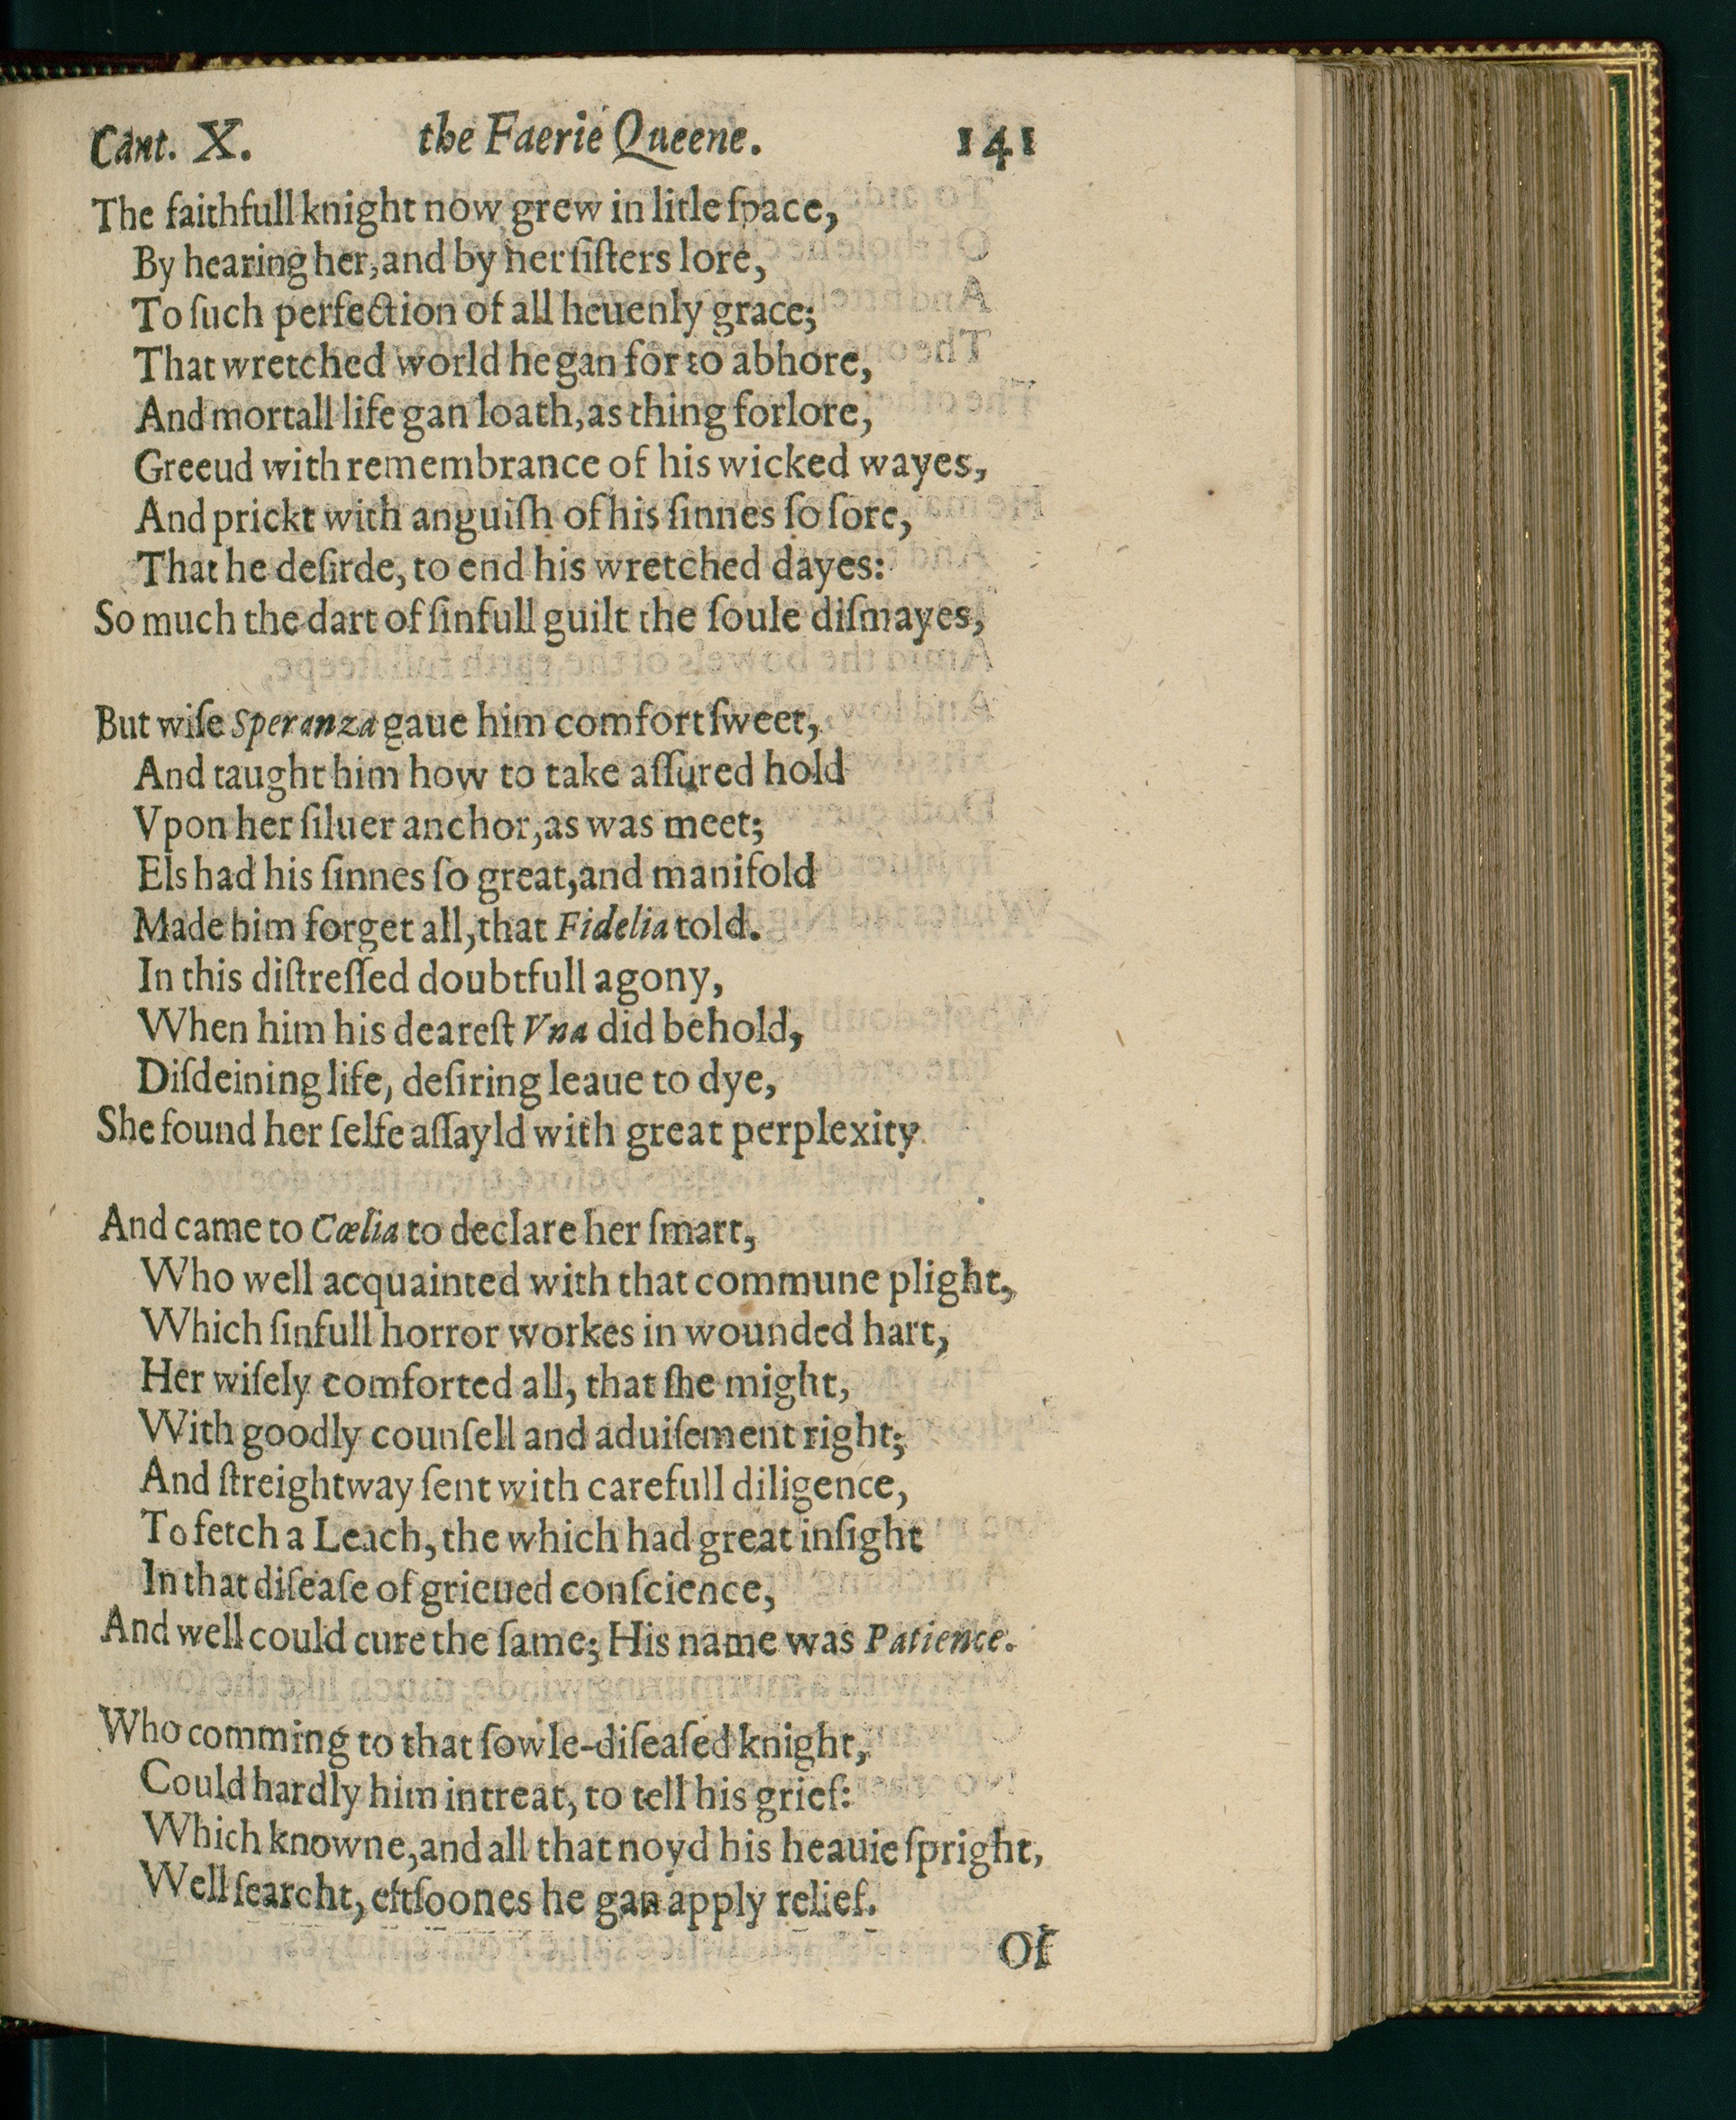 Cant. X. the Faerie Queene. 141
The faithfull knight now grew in litle ſpace,
By hearing her, and by her ſiſters lore,
To ſuch perfection of all heuenly grace;
That wretched world he gan for to abhore,
And mortall life gan loath, as thing forlore,
Greeud with remembrance of his wicked wayes,
And prickt with anguiſh of his ſinnes ſo ſore,
That he deſirde, to end his wretched dayes:
So much the dart of ſinfull guilt the ſoule diſmayes,
But wiſe Speranza gaue him comfort ſweet,
And taught him how to take aſſured hold
Vpon her ſiluer anchor, as was meet;
Els had his ſinnes ſo great, and manifold
Made him forget all, that Fidelia told.
In this diſtreſſed doubtfull agony,
When him his deareſt Vna did behold,
Diſdeining life, deſiring leaue to dye,
She found her ſelfe aſſayld with great perplexity.
And came to Cœlia to declare her ſmart,
Who well acquainted with that commune plight,
Which ſinfull horror workes in wounded hart,
Her wiſely comforted all, that ſhe might,
With goodly counſell and aduiſement right;
And ſtreightway ſent with carefull diligence,
To fetch a Leach, the which had great inſight
In that diſeaſe of grieued conſcience,
And well could cure the ſame; His name was Patience.
Who comming to that ſowle-diſeaſed knight,
Could hardly him intreat, to tell his grief:
Which knowne, and all that noyd his heauie ſpright,
Well ſearcht, eftſoones he gan apply relief.
Of